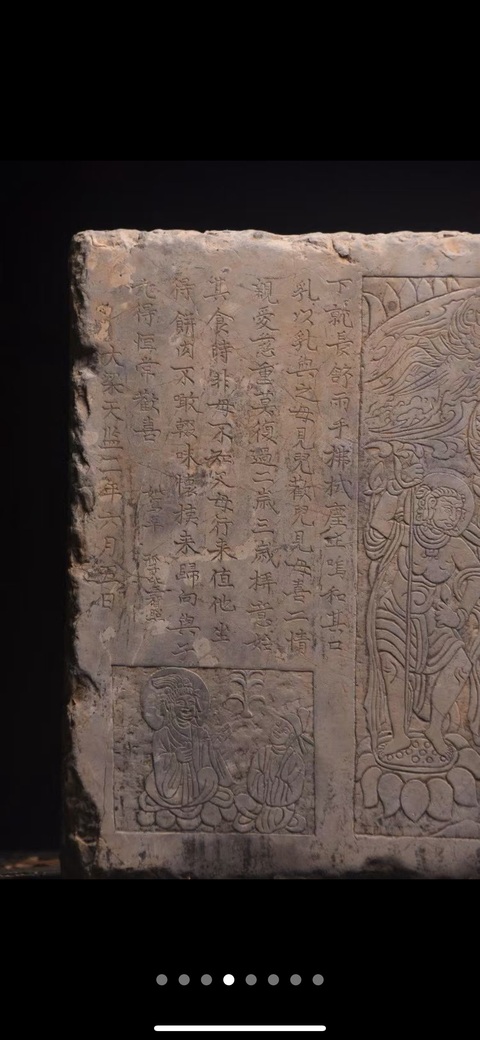 下就長舒兩手拂拭塵土嗚和其口
乳以乳與之母見兒歡兒見母喜二情
親愛慈重莫復過二歲三歲意始
其食時非母不知父母行來值他坐
得餅肉不敢輟味懷挾來歸向與子
九得恒常歡喜
大梁天監二年六月五日